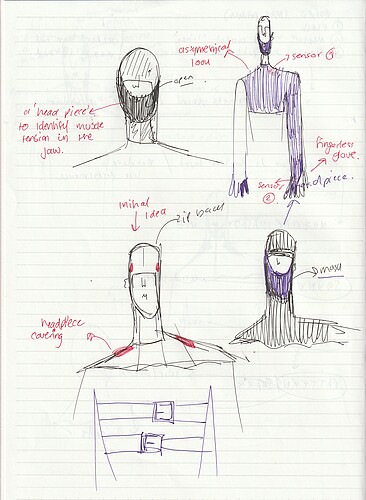 asymetrical
look
sensor ①
open
a 'head piece'
to identify muscle
tension in the
jaw.
fingerless
glove.
sensor
②
handpiece.
initial
idea
zip back
mask
headpiece
covering